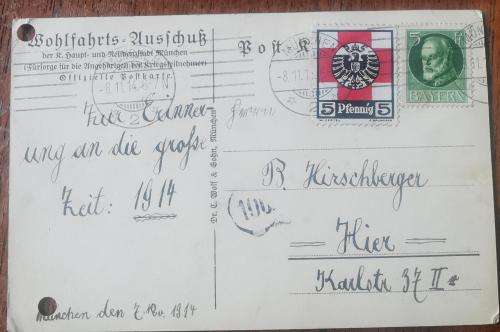 Wohlfahrts-Ausschuß
der K. Haupt- und Residenzstadt München
(Fürsorge für die Angehörigen der Kriegsteilnehmer)
Offizielle Postkarte.
Post-K
- 8.11.14. 6-7N
2
5
BAYERN
5 Pfennig 5
Zur Erinner-
ung an die große
Zeit: 1914
München den 7. Nov. 1914
Dr. C. Wolf & Sohn, München
B. Hirschberger
Hier
Karlstr 37 II